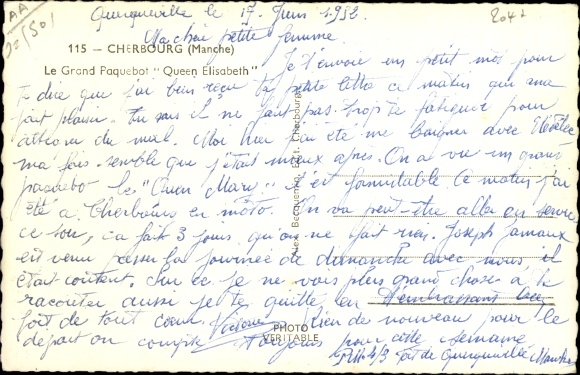 Querqueville le 17 Juin 1952
2042
AA
Ma chère petite femme
115 — CHERBOURG (Manche)
Le Grand Paquebot "Queen Elisabeth"
Je t'envoie un petit mot pour
te dire que j'ai bien reçu ta petite lettre ce matin qui m'a
fait plaisir. Tu sais il ne faut pas trop te fatiguer pour
du mal. Moi hier j'ai été me baigner avec
ma semble que j'étais mieux après. On a vu un grand
paquebot le "Queen Mary" c'est formidable. Ce matin j'ai
été a Cherbourg en moto. On va peut-être aller en
ce soir, ca fait 3 jours qu'on ne fait rien. Joseph
est venu passer la journée de dimanche avec nous il
était content. Sur ce je ne vois plus grand chose à te
raconter aussi je te quitte en t'embrassant bien
fort de tout coeur. Rien de nouveau pour le
départ on compte toujours pour cette semaine
PHOTO
VERITABLE
Fort de Querqueville Manche